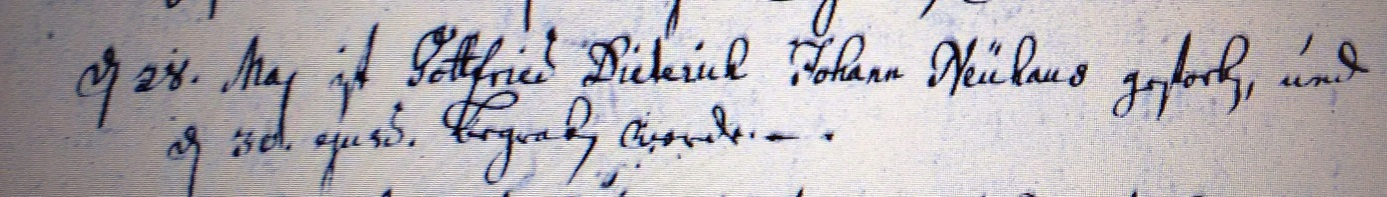 d 28. May ist Gottfried Diederich Johann Neühaus gestorb, und
d 30. ejusd. begrab worde.